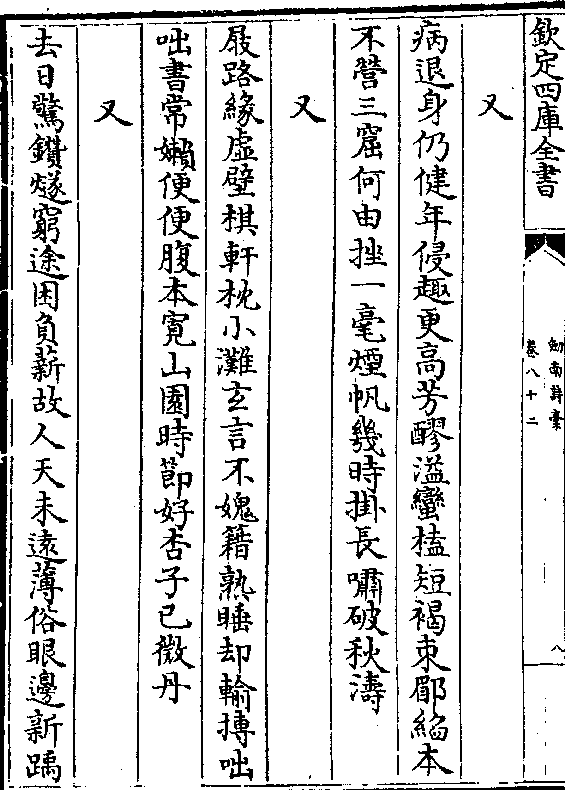 欽定四庫全書
劍南詩槀
卷八十二
八
又
病退身仍健年侵趣更高芳醪溢蠻榼短褐束郿縚本
不營三窟何由挫一毫煙帆幾時掛長嘯破秋濤
又
屐路緣虛壁棋軒枕小灘玄言不媿籍熟睡却輸摶咄
咄書常嬾便便腹本寛山園時節好杏子已微丹
又
去日驚鑽燧窮途困負薪故人天末遠薄俗眼邊新踽